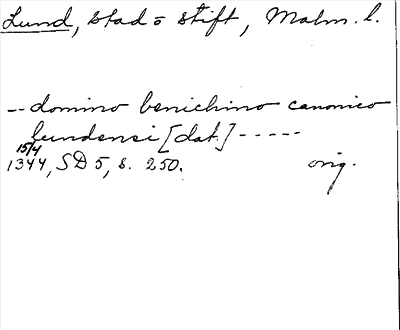 Lund, stad o stift, Malm. l.
-- domino benichino canonico
lundensi [dat.] -----
15/4
1344, SD 5, s. 250. orig.